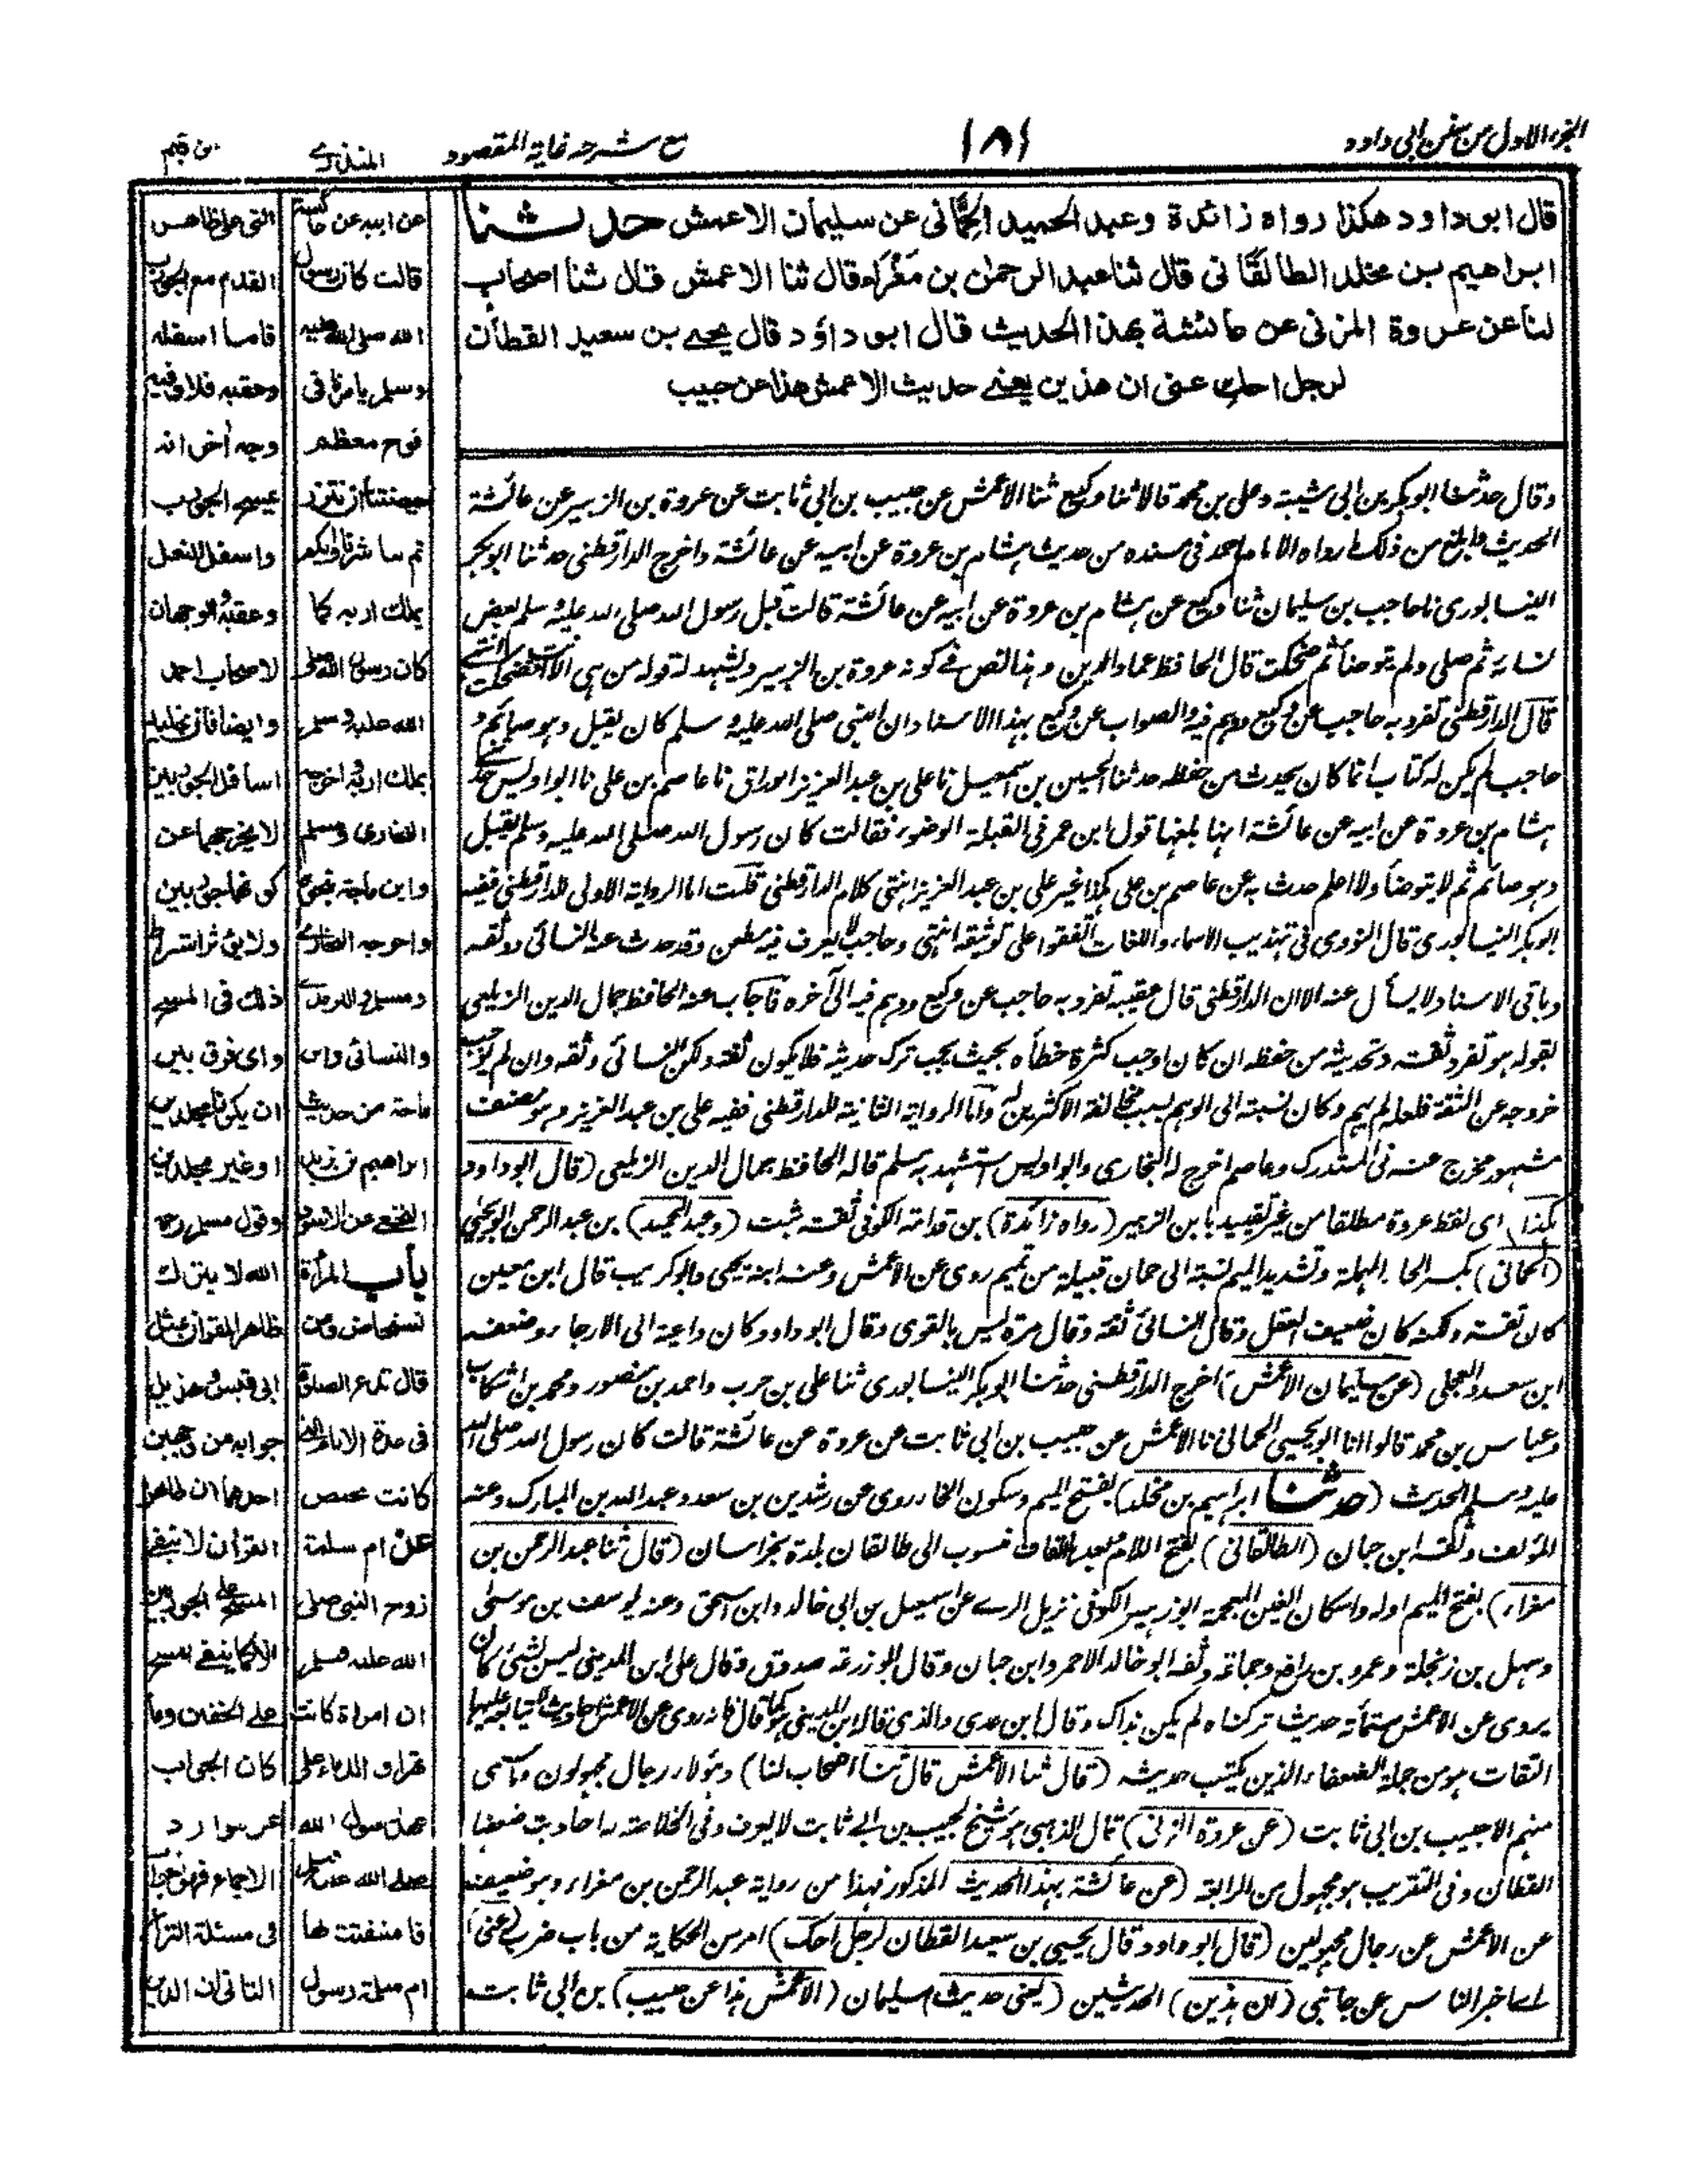 الجزء الاول من سنن ابی داود
١٨١
مع شرحه غاية المقصود
المنذری
بن قیم
قال ابو داود هكذا رواه زائدة وعبد الحميد الحِمَّانی عن سليمان الاعمش حدثنا
ابراهيم بن مخلد الطالَقَانی قال ثنا عبد الرحمٰن بن مَغْرَاء قال ثنا الاعمش قال ثنا اصحاب
لنا عن عروة المزنی عن عائشة بهذا الحديث قال ابو داؤد قال يحيی بن سعيد القطان
لرجل احكِ عنی ان هذين يعنی حديث الاعمش هذا عن حبيب
وقال حدثنا ابوبكر بن ابی شيبة وعلی بن محمد قالا ثنا وكيع ثنا الاعمش عن حبيب بن ابی ثابت عن عروة بن الزبير عن عائشة
الحديث وابلغ من ذلك ما رواه الامام احمد فی مسنده من حديث هشام بن عروة عن ابيه عن عائشة واخرج الدارقطنی حدثنا ابوبكر
النيسابوری نا حاجب بن سليمان ثنا وكيع عن هشام بن عروة عن ابيه عن عائشة قالت قبل رسول الله صلی الله عليه وسلم بعض
نسايه ثم صلی ولم يتوضأ ثم ضحكت قال الحافظ عماد الدين وهذا نص فی كونه عروة بن الزبير ويشهد له قوله من هی الا انت فضحكت انتهی
قال الدارقطنی تفرد به حاجب عن وكيع ووهم فيه والصواب عن وكيع بهذا الاسناد ان النبی صلی الله عليه وسلم كان يقبل وهو صائم و
حاجب لم يكن له كتاب انما كان يحدث من حفظه حدثنا الحسين بن اسمعيل نا علی بن عبد العزيز الوراق نا عاصم بن علی نا ابو اويس حدثنی
هشام بن عروة عن ابيه عن عائشة انها بلغها قول ابن عمر فی القبلة الوضوء فقالت كان رسول الله صلی الله عليه وسلم يقبل
وهو صائم ثم لا يتوضأ ولا اعلم حدث به عن عاصم بن علی هكذا غير علی بن عبد العزيز انتهی كلام الدارقطنی قلت اما الرواية الاولی للدارقطنی ففيه
ابوبكر النيسابوری قال النووی فی تهذيب الاسماء واللغات اتفقوا علی توثيقه انتهی وحاجب لا يعرف فيه مطعن وقد حدث عنه النسائی ووثقه
وباقی الاسناد لا يسأل عنه الا ان الدارقطنی قال عقيبه تفرد به حاجب عن وكيع ووهم فيه الی آخره فاجاب عنه الحافظ جمال الدين الزيلعی
بقوله هو تفرد ثقة وتحديثه من حفظه ان كان اوجب كثرة خطأه بحيث يجب ترك حديثه فلا يكون ثقة ولكن النسائی وثقه وان لم يوجب
خروجه عن الثقة فلعله لم يهم وكان نسبته الی الوهم بسبب مخالفة الاكثرين له واما الرواية الثانية للدارقطنی ففيه علی بن عبد العزيز وهو مصنف
مشهور مخرج عنه فی المستدرك وعاصم اخرج له البخاری وابو اويس استشهد به مسلم قاله الحافظ جمال الدين الزيلعی (قال ابو داود
هكذا) ای لفظ عروة مطلقا من غير تقييد بابن الزبير (رواه زائدة) بن قدامة الكوفی ثقة ثبت (وعبد الحميد) بن عبد الرحمن ابو يحيی
(الحمانی) بكسر الحاء المهملة وتشديد الميم نسبة الی حمان قبيلة من تميم روی عن الاعمش وعنه ابنه يحيی وابو كريب قال ابن معين
كان ثقة ولكنه كان ضعيف العقل وقال النسائی ثقة وقال مرة ليس بالقوی وقال ابو داود كان داعية الی الارجاء وضعفه
ابن سعد والعجلی (عن سليمان الاعمش) اخرج الدارقطنی حدثنا ابوبكر النيسابوری ثنا علی بن حرب واحمد بن منصور ومحمد بن اشكاب
وعباس بن محمد قالوا انا ابو يحيی الحمانی نا الاعمش عن حبيب بن ابی ثابت عن عروة عن عائشة قالت كان رسول الله صلی الله
عليه وسلم الحديث (حدثنا ابراهيم بن مخلد) بفتح الميم وسكون الخاء روی عن رشدين بن سعد وعبد الله بن المبارك وعنه
المؤلف وثقه ابن حبان (الطالقانی) بفتح اللام بعدها القاف منسوب الی طالقان بلدة بخراسان (قال ثنا عبد الرحمن بن
مغراء) بفتح الميم اوله واسكان الغين المعجمة ابو زهير الكوفی نزيل الری عن اسمعيل بن ابی خالد وابن اسحق وعنه يوسف بن موسی
وسهل بن زنجلة وعمرو بن رافع وجماعة وثقه ابو خالد الاحمر وابن حبان وقال ابو زرعة صدوق وقال علی ابن المدينی ليس بشئ كان
يروی عن الاعمش ستمأة حديث تركناه لم يكن بذاك وقال ابن عدی والذی قاله ابن المدينی هو كما قال فانه روی عن الاعمش احاديث لا يتابعه عليها
الثقات وهو من جملة الضعفاء الذين يكتب حديثه (قال ثنا الاعمش قال ثنا اصحاب لنا) وهؤلاء رجال مجهولون وما سمی
منهم الا حبيب بن ابی ثابت (عن عروة المزنی) قال الذهبی هو شيخ لحبيب بن ابی ثابت لا يعرف وفی الخلاصة له احاديث ضعفها
القطان وفی التقريب هو مجهول من الرابعة (عن عائشة بهذا الحديث) المذكور فهذا من رواية عبد الرحمن بن مغراء وهو ضعيف
عن الاعمش عن رجال مجهولين (قال ابو داود قال يحيی بن سعيد القطان لرجل احك) امر من الحكاية من باب ضرب (عنی)
ای اخبر الناس عن جانبی (ان هذين) الحديثين (يعنی حديث) سليمان (الاعمش هذا عن حبيب) بن ابی ثابت
عن ابيه عن عائشة
قالت كان رسول
الله صلی الله عليه
وسلم يامرنا فی
فوح معظم
حيضتنا ان نتزر
ثم يباشرنا وايكم
يملك اربه كما
كان رسول الله صلی
الله عليه وسلم
يملك اربه اخرجه
البخاری ومسلم
وابن ماجة بنحوه
واخرجه البخاری
ومسلم والترمذی
والنسائی وابن
ماجة من حديث
ابراهيم بن يزيد
النخعی عن الاسود
باب المرأة
تستحاض ومن
قال تدع الصلوة
فی عدة الايام التی
كانت تحيض
عن ام سلمة
زوج النبی صلی
الله عليه وسلم
ان امراة كانت
تهراق الدماء علی
عهد رسول الله
صلی الله عليه وسلم
فاستفتت لها
ام سلمة رسول
التی علی ظاهر
القدم مع الجورب
فاما اسفله
وعقبه فلا وفيه
وجه اخر انه
يمسح الجورب
واسفل النعل
وعقبه والوجهان
لاصحاب احمد
وايضا فان تجليد
اسافل الجوربين
لا يخرجهما عن
كونهما جوربين
ولا يؤثر اشتراط
ذلك فی المسح
وای فرق بين
ان يكونا مجلدين
او غير مجلدين
وقول مسلم رحمه
الله لا يترك
ظاهر القران بمثل
ابی قيس وهزيل
جوابه من وجهين
احدهما ان ظاهر
القرآن لا ينفی
المسح علی الجوربين
الا كما ينفی المسح
علی الخفين وما
كان الجواب
عن موارد
الاجماع فهو الجواب
فی مسئلة النزاع
الثانی ان الذين